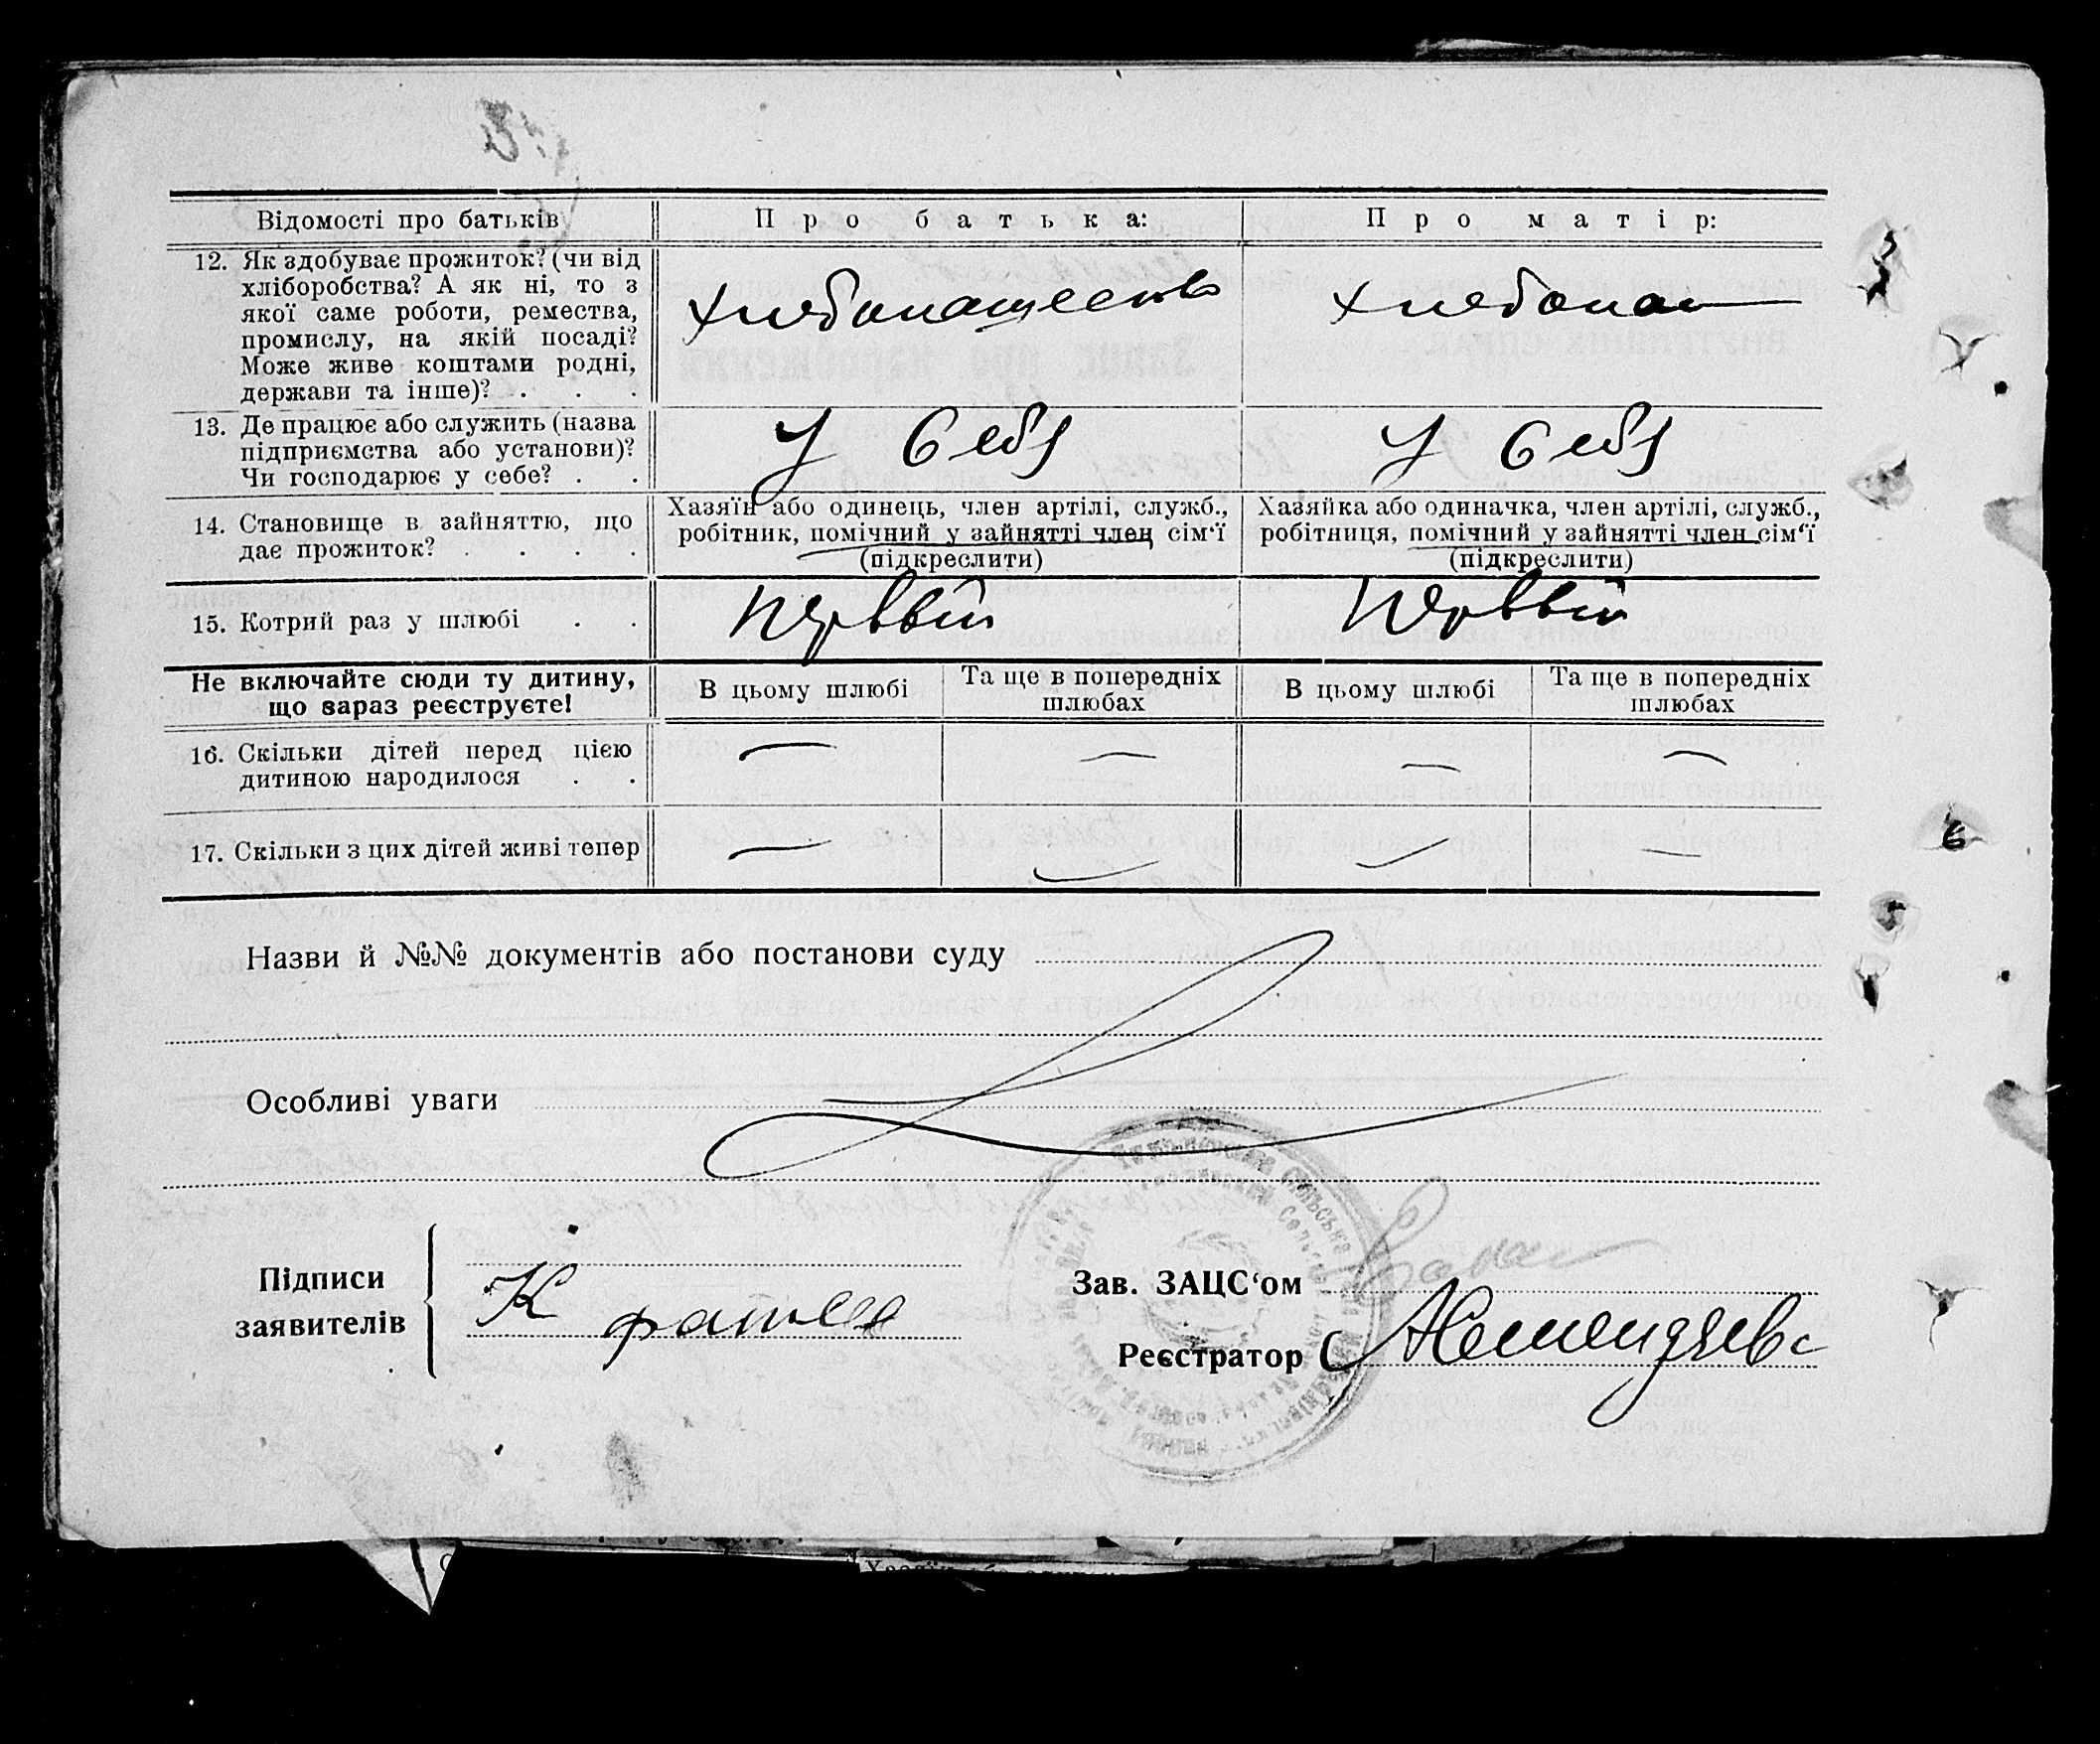 Відомості про батьків
Про батька:
Про матір:
12. Як здобуває прожиток? (чи від
хліборобства? А як ні, то з
якої саме роботи, ремества,
промислу, на якій посаді?
Може живе коштами родні,
держави та інше)? . . .
Хлебопашеств
Хлебопаш
13. Де працює або служить (назва
підприємства або установи)?
Чи господарює у себе? . .
У Себя
У Себя
14. Становище в зайняттю, що
дає прожиток? . . . .
Хазяїн або одинець, член артілі, служб.,
робітник, помічний у зайнятті член сім'ї
(підкреслити)
Хазяйка або одиначка, член артілі, служб.,
робітниця, помічний у зайнятті член сім'ї
(підкреслити)
15. Котрий раз у шлюбі . .
Первый
Первый
Не включайте сюди ту дитину,
що зараз реєструєте!
В цьому шлюбі
Та ще в попередніх
шлюбах
В цьому шлюбі
Та ще в попередніх
шлюбах
16. Скільки дітей перед цією
дитиною народилося . .
— — — —
17. Скільки з цих дітей живі тепер
— — — —
Назви й №№ документів або постанови суду
Особливі уваги
Підписи
заявителів
К
Зав. ЗАЦС'ом
Реєстратор
6